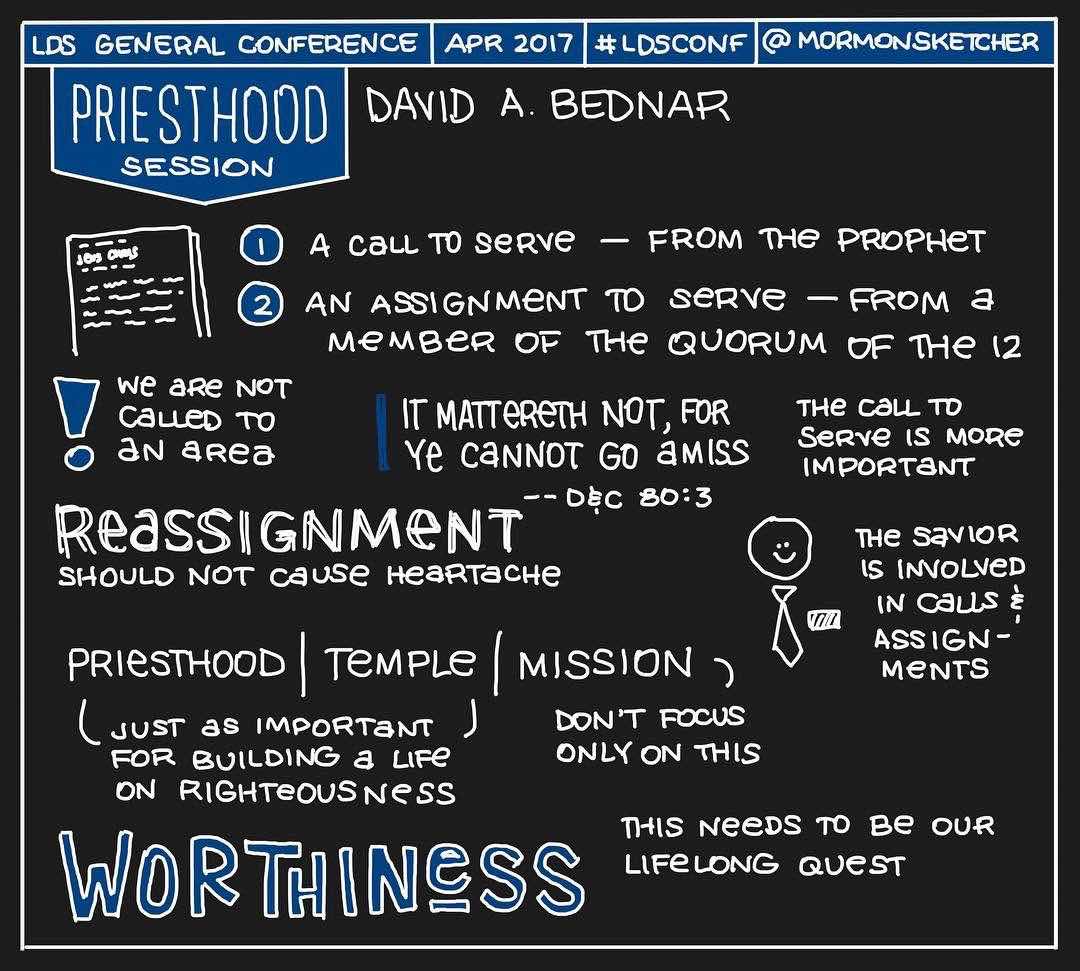 LDS GENERAL CONFERENCE | APR 2017 | #LDSCONF | @MORMONSKETCHER
PRIESTHOOD
SESSION
DAVID A. BEDNAR
1 A CALL TO SERVE — FROM THE PROPHET
2 AN ASSIGNMENT TO SERVE — FROM A
MEMBER OF THE QUORUM OF THE 12
! WE ARE NOT
CALLED TO
AN AREA
IT MATTERETH NOT, FOR
YE CANNOT GO AMISS
-- D&C 80:3
THE CALL TO
SERVE IS MORE
IMPORTANT
REASSIGNMENT
SHOULD NOT CAUSE HEARTACHE
THE SAVIOR
IS INVOLVED
IN CALLS &
ASSIGN-
MENTS
PRIESTHOOD | TEMPLE | MISSION
JUST AS IMPORTANT
FOR BUILDING A LIFE
ON RIGHTEOUSNESS
DON'T FOCUS
ONLY ON THIS
WORTHINESS
THIS NEEDS TO BE OUR
LIFELONG QUEST